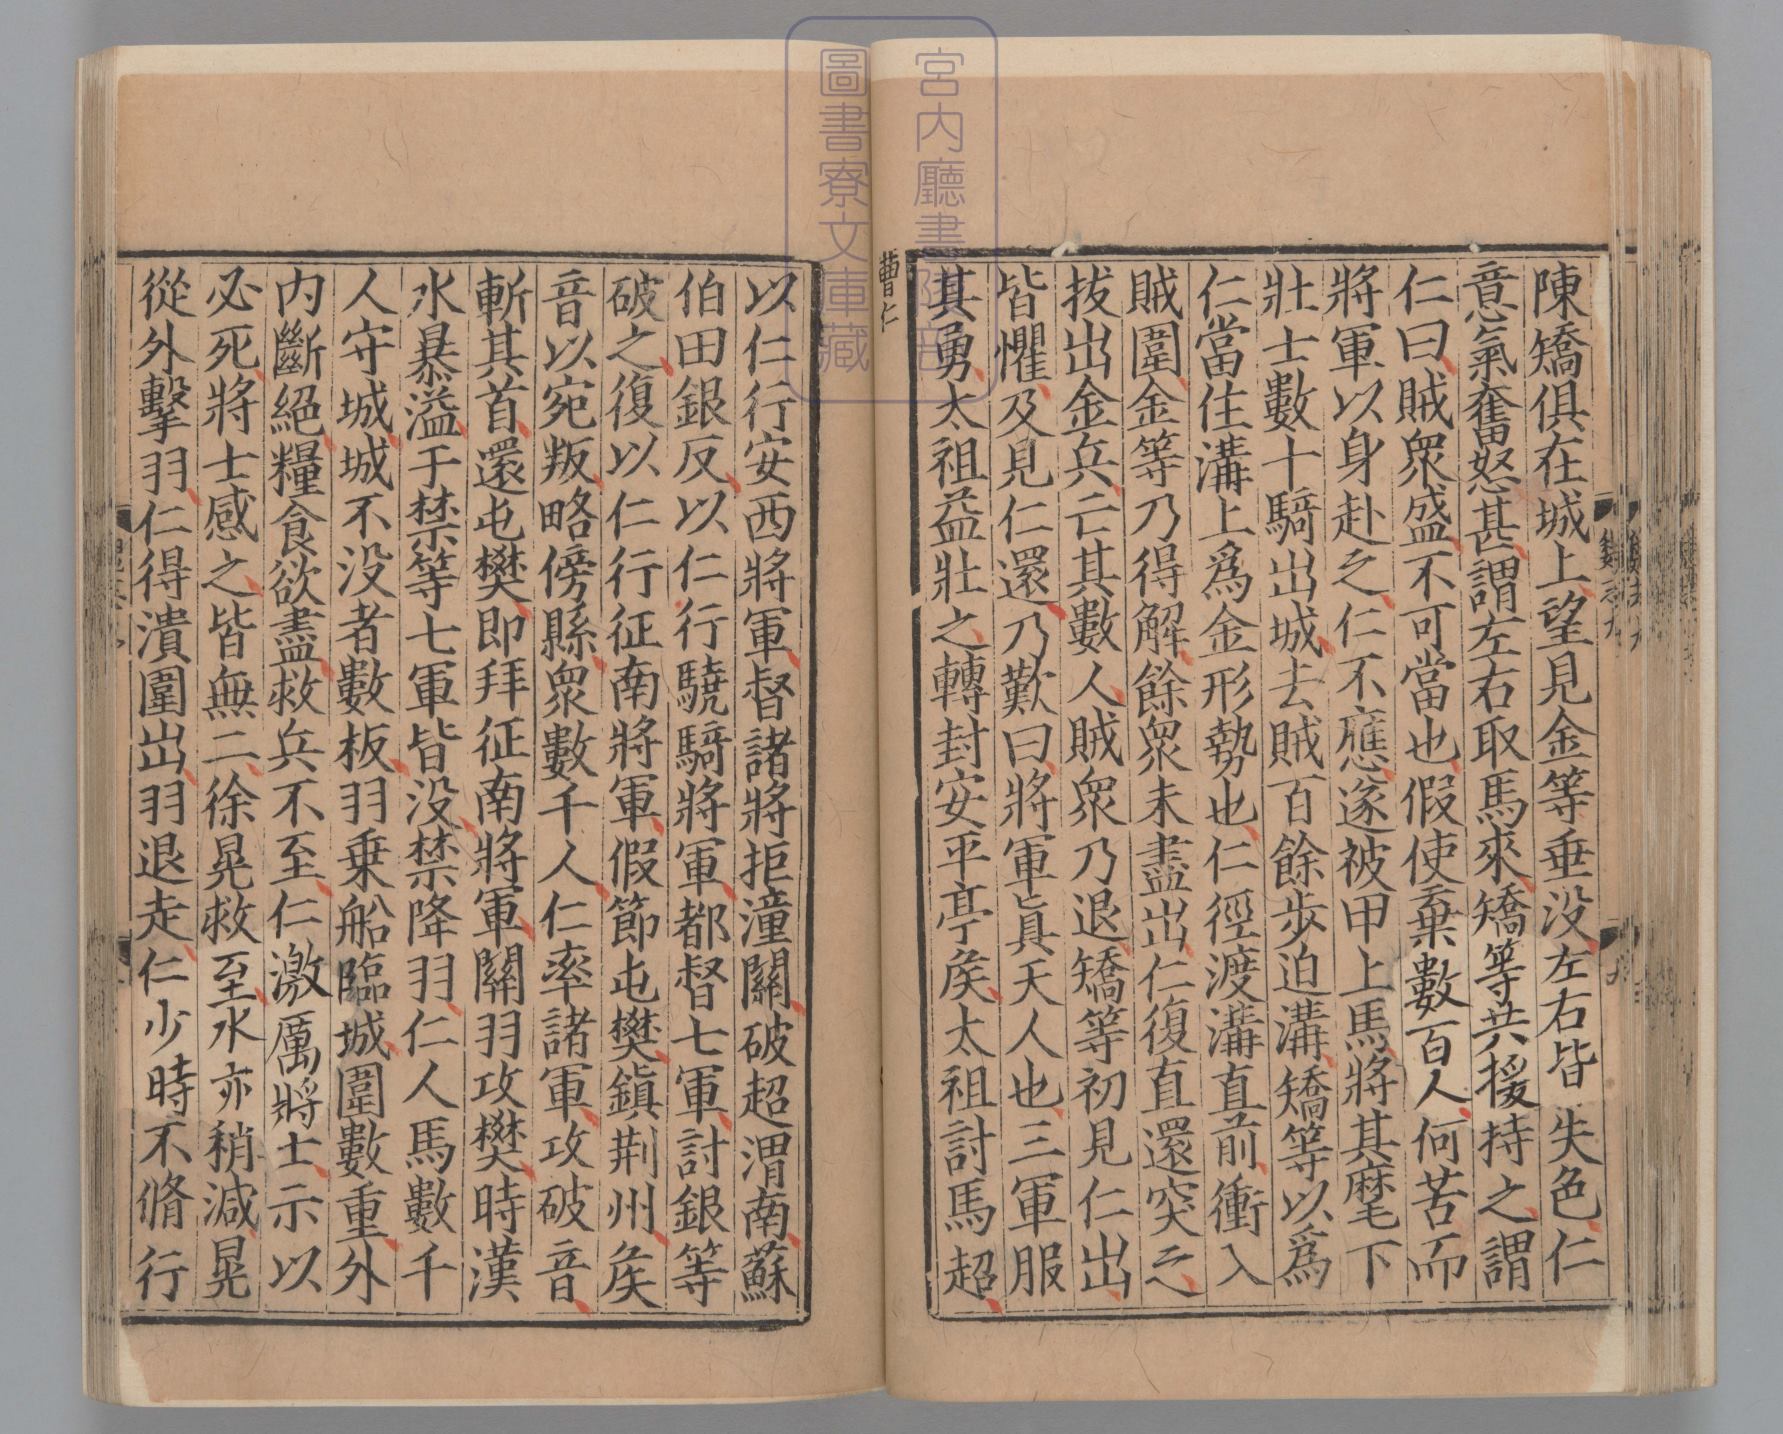 陳矯俱在城上望見金等垂没左右皆失色仁
意氣奮怒甚謂左右取馬來矯等共援持之謂
仁曰賊衆盛不可當也假使棄數百人何苦而
將軍以身赴之仁不應遂被甲上馬將其麾下
壯士數十騎出城去賊百餘歩迫溝矯等以爲
仁當住溝上爲金形勢也仁徑渡溝直前衝入
賊圍金等乃得解餘衆未盡出仁復直還突之
拔出金兵亡其數人賊衆乃退矯等初見仁出
皆懼及見仁還乃歎曰將軍真天人也三軍服
其勇太祖益壯之轉封安平亭矦太祖討馬超
曹仁
以仁行安西將軍督諸將拒潼關破超渭南蘇
伯田銀反以仁行驍騎將軍都督七軍討銀等
破之復以仁行征南將軍假節屯樊鎮荆州矦
音以宛叛略傍縣衆數千人仁率諸軍攻破音
斬其首還屯樊即拜征南將軍關羽攻樊時漢
水暴溢于禁等七軍皆没禁降羽仁人馬數千
人守城城不没者數板羽乗船臨城圍數重外
内斷絕糧食欲盡救兵不至仁激厲將士示以
必死將士感之皆無二徐晃救至水亦稍減晃
從外擊羽仁得潰圍出羽退走仁少時不脩行
宮内廳書陵部
圖書寮文庫藏